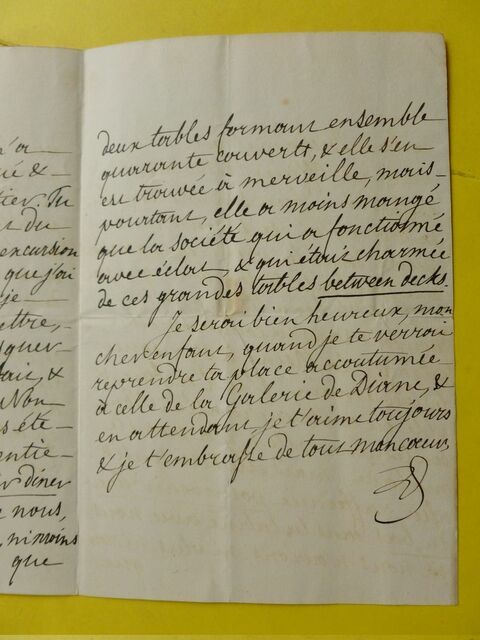 n'a
né &
tier. Tu
t du
excursion
que j'ai
je
ettre,
quer-
ait, &
Non
s été
entie-
dîner
nous,
, ni moins
que
deux tables formant ensemble
quarante couverts, & elle s'en
est trouvée à merveille, mais
pourtant, elle a moins mangé
que la société qui a fonctionné
avec éclat, & qui étoit charmée
de ces grandes tables between decks.
Je serai bien heureux, mon
cher enfant, quand je te verrai
reprendre ta place accoutumée
à celle de la Galerie de Diane, &
en attendant je t'aime toujours
& je t'embrasse de tout mon coeur,